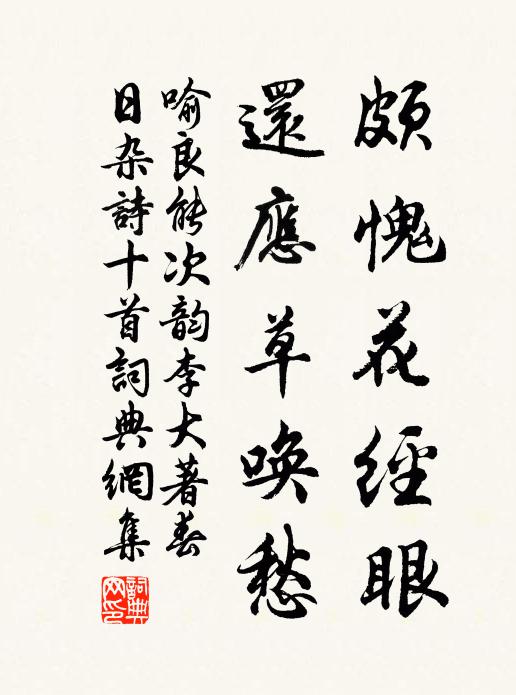 頗愧花經眼
還應草喚愁
喻良能次韵李大著春
日杂詩十首詞典網集
詞典网印